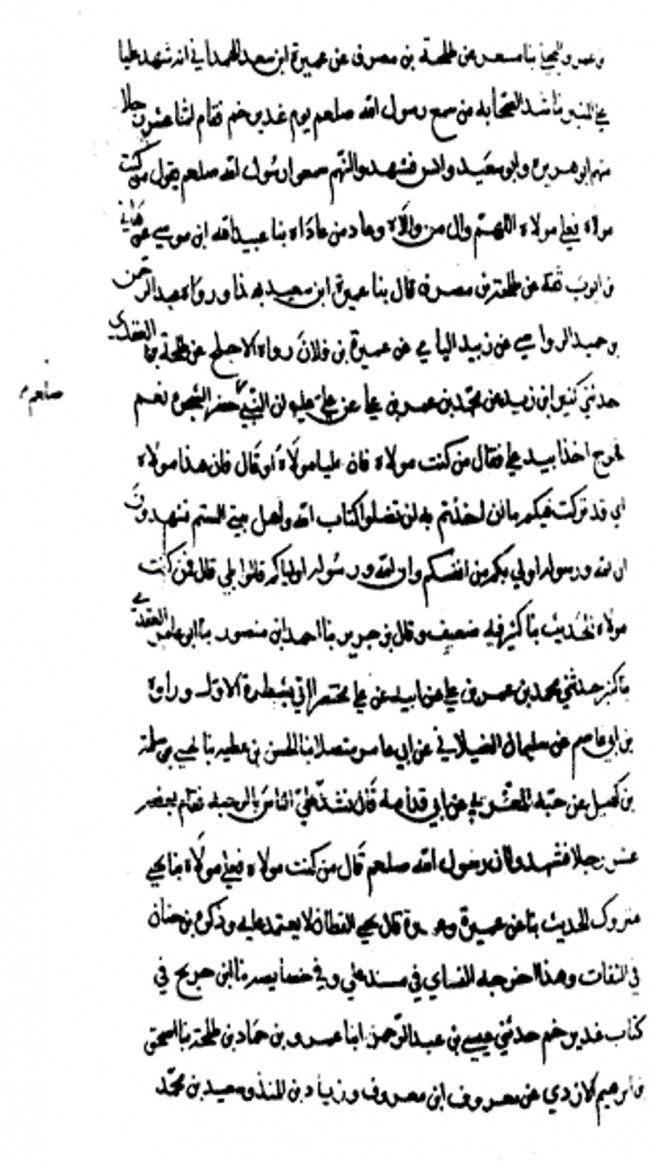 بن عمرو البجلي نا مسعر عن طلحة بن مصرف عن عميرة ابن سعد الهمداني انه شهد عليا
على المنبر ناشد الصحابة من سمع رسول الله صلعم يوم غدير خم فقام اثنا عشر رجلا
منهم ابو هريرة وابو سعيد وانس فشهدوا انهم سمعوا رسول الله صلعم يقول من كنت
مولاه فعلي مولاه اللهم وال من والاه وعاد من عاداه نا عبيد الله ابن موسى عن هاني
بن ايوب ثقة عن طلحة بن مصرف قال نا عميرة ابن سعيد بهذا ورواه عبد الرحمن
بن حميد الرواسي عن زبيد اليامي عن عميرة بن فلان رواه الاجلح عن طلحة نا العقدي
حدثني كثير ابن زيد عن محمد بن عمر بن علي عن علي ان النبي حضر الشجرة نعم
صلعم
فخرج اخذا بيد علي فقال من كنت مولاه فان عليا مولاه او قال فان هذا مولاه
اني قد تركت فيكم ما ان اخذتم به لن تضلوا كتاب الله واهل بيتي الستم تشهدون
ان الله ورسوله اولى بكم من انفسكم وان الله ورسوله اولياكم قالوا بلى قال فمن كنت
مولاه الحديث نا كثير فيه ضعيف وقال بن جرير نا احمد ابن منصور نا ابو عامر العقدي
نا كثير حدثني محمد بن عمر بن علي عن ابيه عن علي مختصرا اتى بشطره الاول ورواه
بن ابي عاصم عن سليمان الغيلاني عن ابي عامر متصلا نا الحسن بن عطية نا يحيى بن سلمة
بن كهيل عن حبة العرني عن ابي قدامة قال نشد علي الناس بالرحبة فقام بضعة
عشر رجلا فشهدوا ان رسول الله صلعم قال من كنت مولاه فعلي مولاه نا يحيى
متروك الحديث نا عن عميرة قال يحيى القطان لا يعتمد عليه وذكره بن حبان
في الثقات وهذا اخرجه النساي في مسند علي وفي خصايصه نا ابن جريج في
كتاب غدير خم حدثني عيسى بن عبد الرحمن انا عمرو بن حماد بن طلحة نا اسحق
بن ابرهيم الازدي عن معروف ابن معروف وزياد بن المنذر وسعيد بن محمد